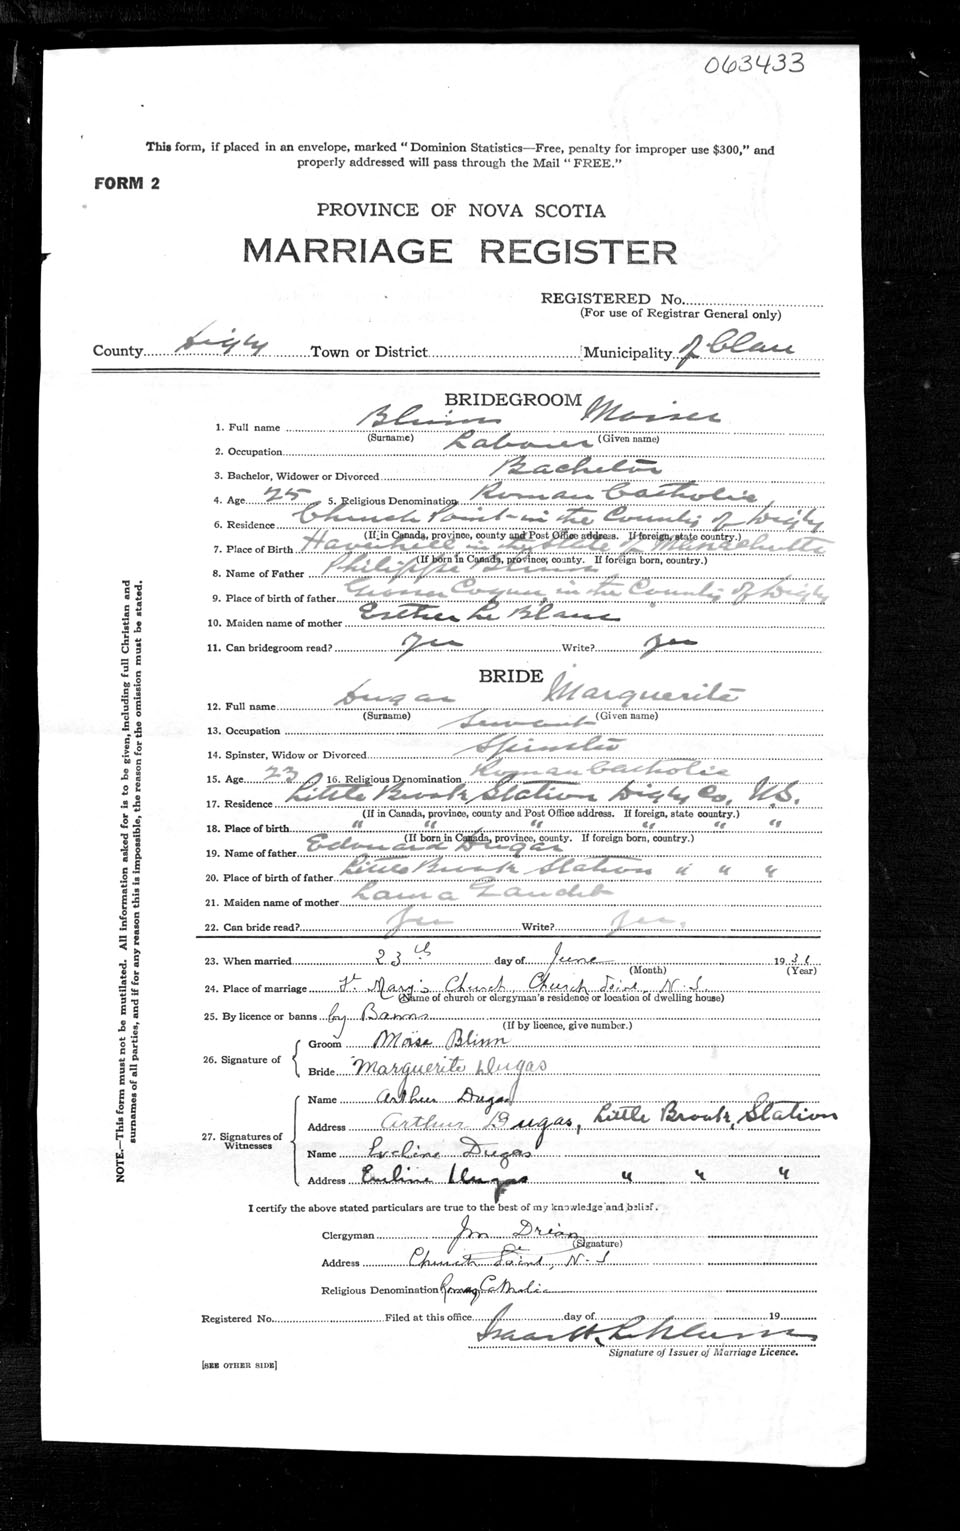 063433
This form, if placed in an envelope, marked "Dominion Statistics—Free, penalty for improper use $300," and
properly addressed will pass through the Mail "FREE."
FORM 2
PROVINCE OF NOVA SCOTIA
MARRIAGE REGISTER
REGISTERED No.
(For use of Registrar General only)
County Digby Town or District Municipality of Clare
BRIDEGROOM
1. Full name Blinn
(Surname) (Given name)
2. Occupation Labourer
3. Bachelor, Widower or Divorced Bachelor
4. Age 25 5. Religious Denomination Roman Catholic
6. Residence Church Point in the County of Digby
(If in Canada, province, county and Post Office address. If foreign, state country.)
7. Place of Birth Haverhill in the State of Massachusetts
(If born in Canada, province, county. If foreign born, country.)
8. Name of Father Philippe Blinn
9. Place of birth of father in the County of Digby
10. Maiden name of mother Esther Le Blanc
11. Can bridegroom read? Yes Write? Yes
BRIDE
12. Full name Dugas Marguerite
(Surname) (Given name)
13. Occupation Servant
14. Spinster, Widow or Divorced Spinster
15. Age 23 16. Religious Denomination Roman Catholic
17. Residence Little Brook Station Digby Co. N.S.
(If in Canada, province, county and Post Office address. If foreign, state country.)
18. Place of birth " " " " " "
(If born in Canada, province, county. If foreign born, country.)
19. Name of father Edouard Dugas
20. Place of birth of father Little Brook Station " " "
21. Maiden name of mother Laura Gaudet
22. Can bride read? Yes Write? Yes.
23. When married 23th day of June 1931
(Month) (Year)
24. Place of marriage St Mary's Church, Church Point, N.S.
(Name of church or clergyman's residence or location of dwelling house)
25. By licence or banns by Banns
(If by licence, give number.)
26. Signature of
Groom Moïse Blinn
Bride Marguerite Dugas
27. Signatures of Witnesses
Name Arthur Dugas
Address Arthur Dugas, Little Brook, Station
Name Eveline Dugas
Address Eveline Dugas " " "
I certify the above stated particulars are true to the best of my knowledge and belief.
Clergyman
(Signature)
Address Church Point, N-S
Religious Denomination Roman Catholic
Registered No. Filed at this office day of 19
Signature of Issuer of Marriage Licence.
[SEE OTHER SIDE]
NOTE.—This form must not be mutilated. All information asked for is to be given, including full Christian and
surnames of all parties, and if for any reason this is impossible, the reason for the omission must be stated.